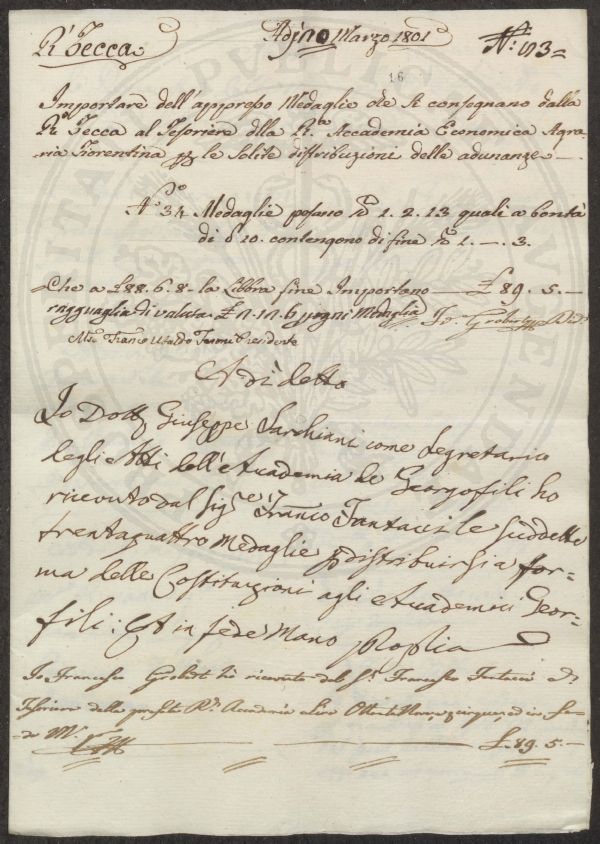 Rl Zecca Adi 10 Marzo 1801 N: 93=
16
Importare dell'appresso Medaglie che si consegnano dalla
Rl Zecca al Tesoriere dlla Rle Accademia Economica Agra-
ria Fiorentina p le solite distribuzioni delle adunanze
No 34 Medaglie pesano lb 1. 2. 23 quali a bontà
di d 10. contengono di fine lb 1. —. 3.
Che a £ 88. 6. 8 la Libbra fine Importano — £ 89. 5. —
ragguaglia di valuta £ p ogni Medaglia Io: Grobert
Presidente
Adì detto
Io Dottr Giuseppe Sarchiani come Segretario
degli Atti dell'Accademia de Georgofili ho
ricevuto dal Sige Franco Fantacci le suddette
trentaquattro Medaglie p distribuirsi a for-
ma delle Costituzioni agli Accademici Geor-
fili: Et in fede Mano Propria
Io Francesco Grobert hò ricevuto dal Sr Francesco Fantacci
Tesoriere della Rl Accademia Lire Ottantanove, e cinque, ed in fe-
de Mo
£ 89. 5. —